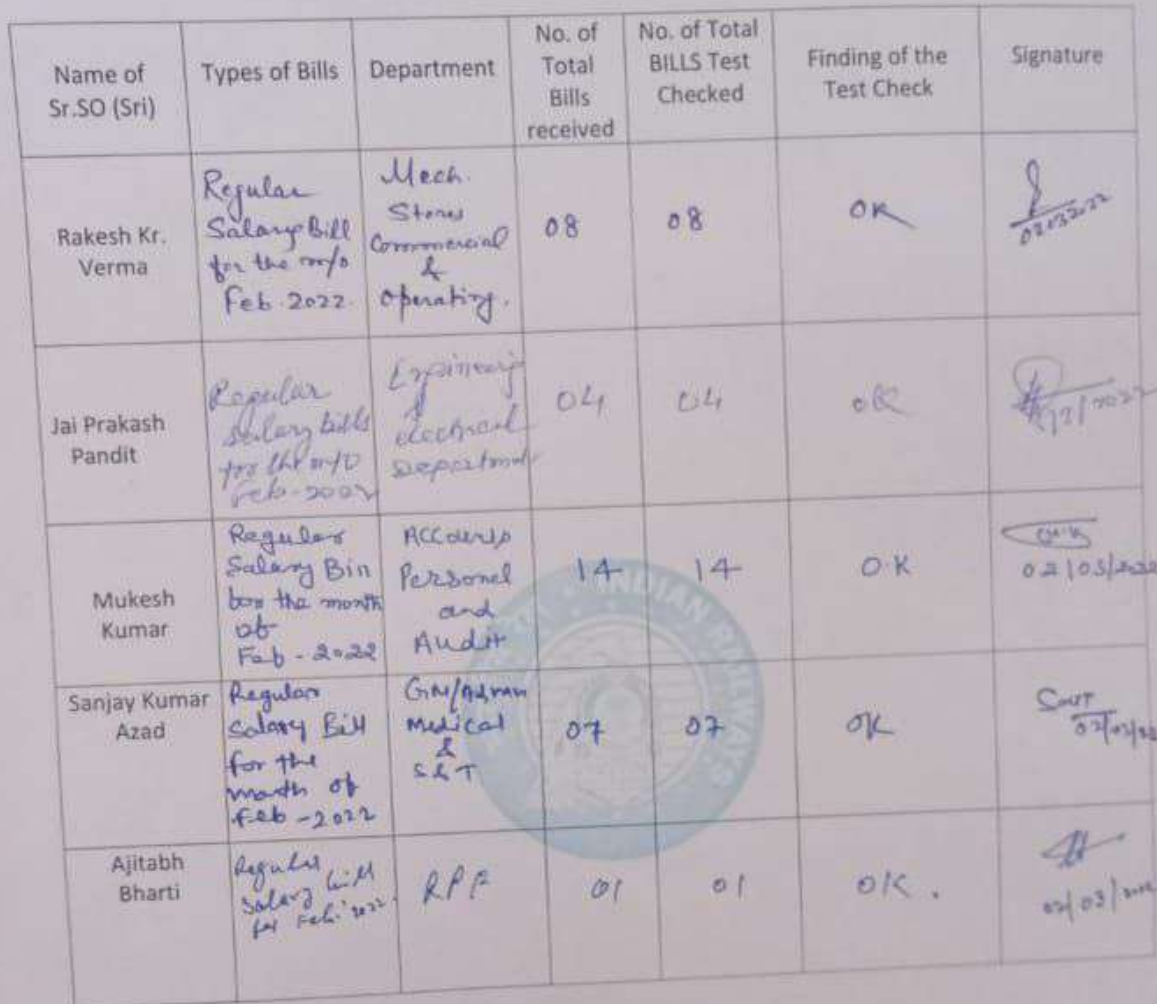 Name of
Sr.SO (Sri)
Types of Bills
Department
No. of
Total
Bills
received
No. of Total
BILLS Test
Checked
Finding of the
Test Check
Signature
Rakesh Kr.
Verma
Regular
Salary Bill
for the m/o
Feb. 2022.
Mech.
Stores
Commercial
&
Operating.
08
08
OK
02032022
Jai Prakash
Pandit
Regular
salary bills
for the m/o
Feb-2022
&
electrical
04
04
OK
Mukesh
Kumar
Regular
Salary
the month
Feb-2022
Accounts
Personel
and
Audit
14
14
OK
02/03/2022
Sanjay Kumar
Azad
Regular
Salary Bill
for the
month of
Feb-2022
GM/
Medical
&
S&T
07
07
OK
Ajitabh
Bharti
Regular
Salary bill
2022.
RPF
01
01
OK.
02/03/2022
INDIAN RAILWAYS